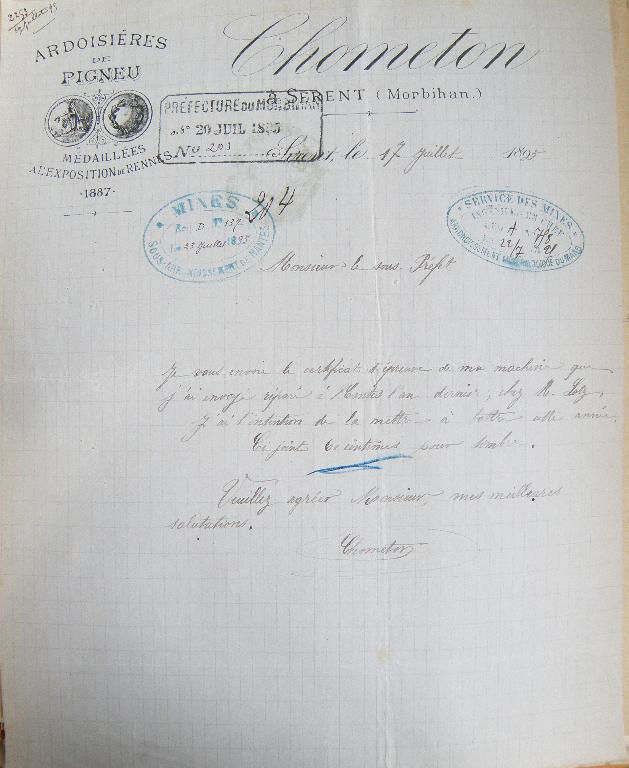 2252
19 juillet 95
ARDOISIÈRES
DE
PIGNEU
MEDAILLÉES
A L'EXPOSITION DE RENNES
·1887·
Chometon
à SERENT (Morbihan.)
PRÉFECTURE DU MORBIHAN
20 JUIL 1895
No 201
Serent, le 17 Juillet 1895
MINES
D. N° 137
Le 23 Juillet 1895
SOUS-ARRONDISSEMENT DE NANTES
204
SERVICE DES MINES
INGÉNIEUR EN CHEF
A N° 718
22/7
ARRONDISSEMENT MINÉRALOGIQUE DU MANS
Monsieur le sous-Préfet
Je vous envoie le certificat d'épreuve de ma machine que
j'ai envoyé réparé à Nantes l'an dernier, chez M.
J'ai l'intention de la mettre à battre cette année.
Ci joint 60 centimes pour timbre.
Veuillez agréer Monsieur, mes meilleures
salutations.
Chometon